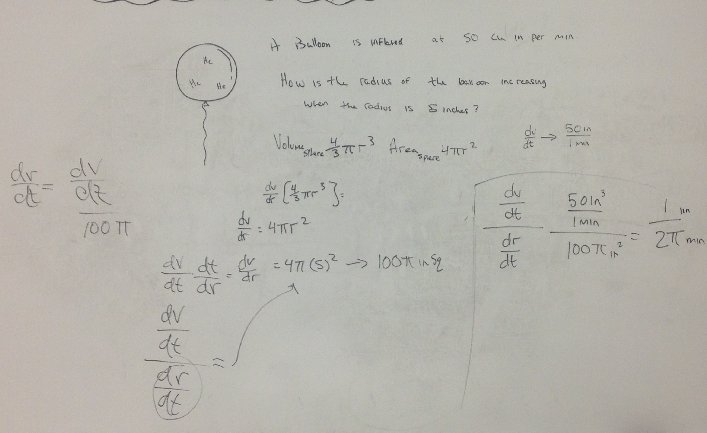 A Balloon is inflated at 50 cu in per min
He
He He
How is the radius of the balloon increasing
when the radius is 5 inches?
Volume sphere 4/3 πr³ Area spere 4πr²
dv/dt → 50in/1min
dr/dt = dv/dt / 100π
dv/dr [4/3 πr³] =
dv/dr = 4πr²
dv/dt dt/dr = dv/dr = 4π(5)² → 100π in sq
dv/dt / dr/dt =
dv/dt / dr/dt 50in³/1min / 100π in² = 1 in / 2π min